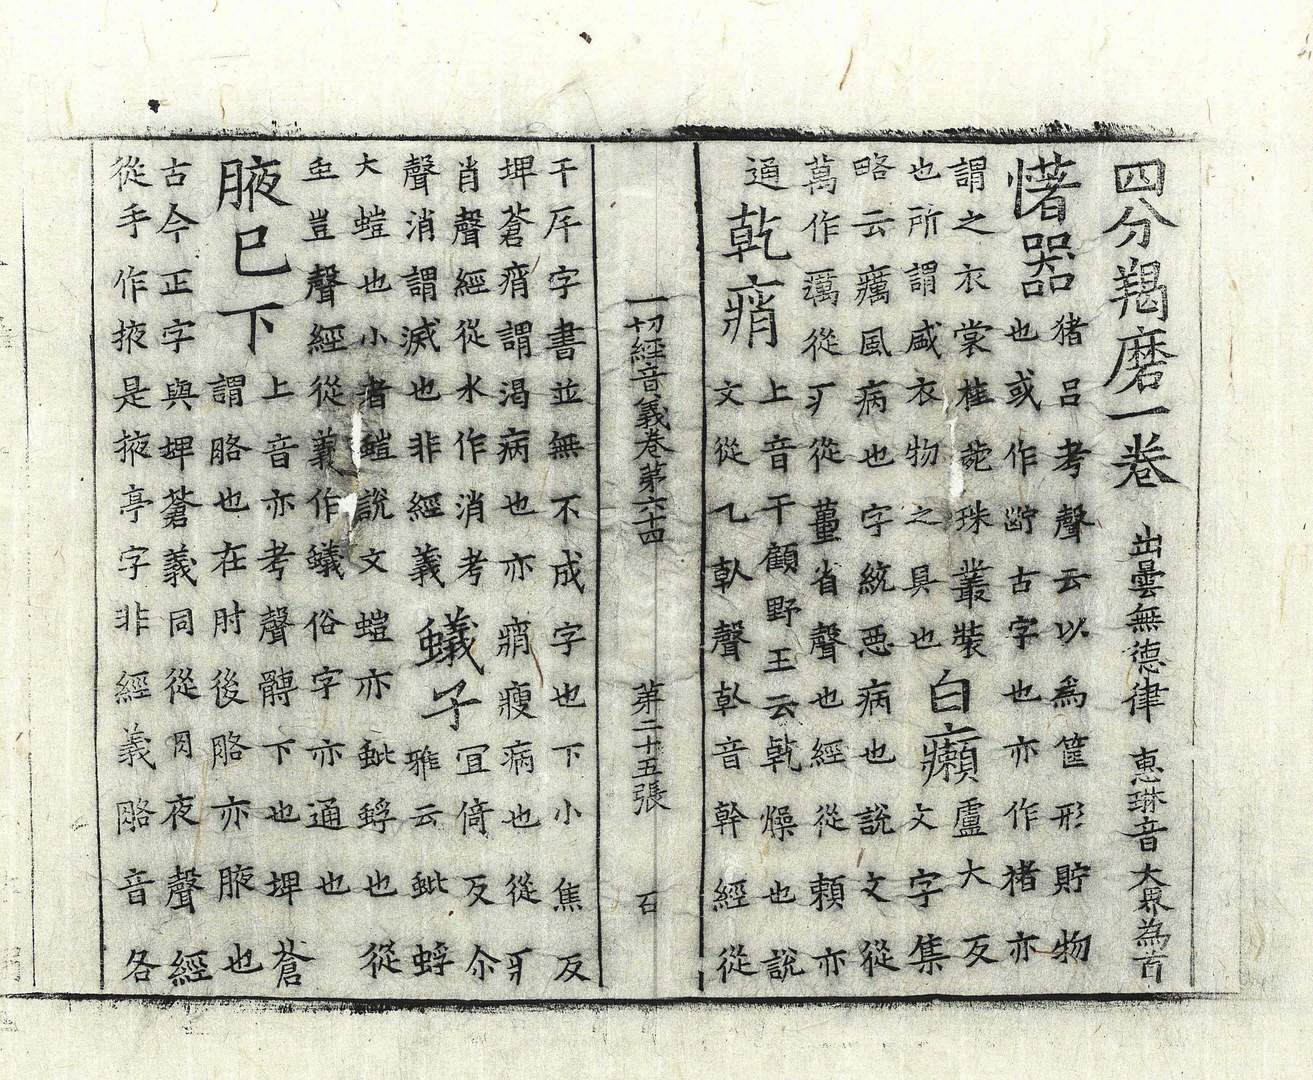 四分羯磨一卷 出曇無德律 惠琳音 大衆為首
器 猪呂考聲云以為筐形貯物
也或作古字也亦作褚亦
謂之衣裳桂珠叢裝
也所謂咸衣物之具也
白癩 盧大反
文字集
略云癘風病也字統惡病也說文從
萬作癘從疒從蠆省聲也經從賴亦
通
乾痟 上音干顧野王云乾燥也說
文從乙倝聲倝音幹經從
一切經音義卷第六十四 第二十五張 石
干斥字書並無不成字也下小焦反
埤蒼痟謂渴病也亦痟瘦病也從疒
肖聲經從水作消考
聲消謂滅也非經義
蟻子 冝倚反尒
雅云蚍蜉
大螘也小者螘說文螘亦蚍蜉也從
虫豈聲經從義作蟻俗字亦通也
腋已下 上音亦考聲髆下也埤蒼
謂胳也在肘後胳亦腋也
古今正字與埤蒼義同從月夜聲經
從手作掖是掖亭字非經義胳音各